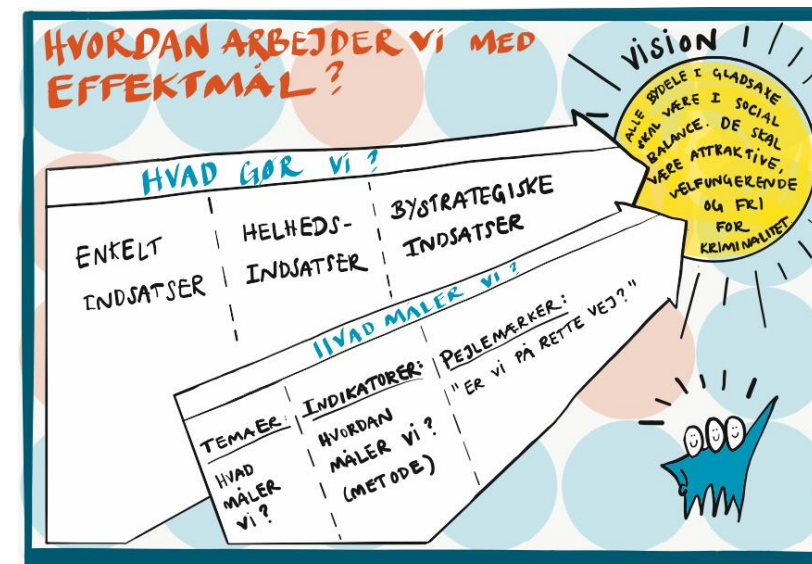 HVORDAN ARBEJDER Vi MED
EFFEKTMÅL?
VISION
ALLE BYDELE I GLADSAXE
SKAL VÆRE I SOCIAL
BALANCE. DE SKAL
VÆRE ATTRAKTIVE,
VELFUNGERENDE
OG FRI
FOR
KRIMINALITET.
HVAD GØR Vi?
ENKELT
INDSATSER
HELHEDS-
INDSATSER
BYSTRATEGISKE
INDSATSER
HVAD MÅLER Vi?
TEMAER:
HVAD
MÅLER
Vi?
INDIKATORER:
HVORDAN
MÅLER Vi?
(METODE)
PEJLEMÆRKER:
"ER Vi PÅ RETTE VEJ?"